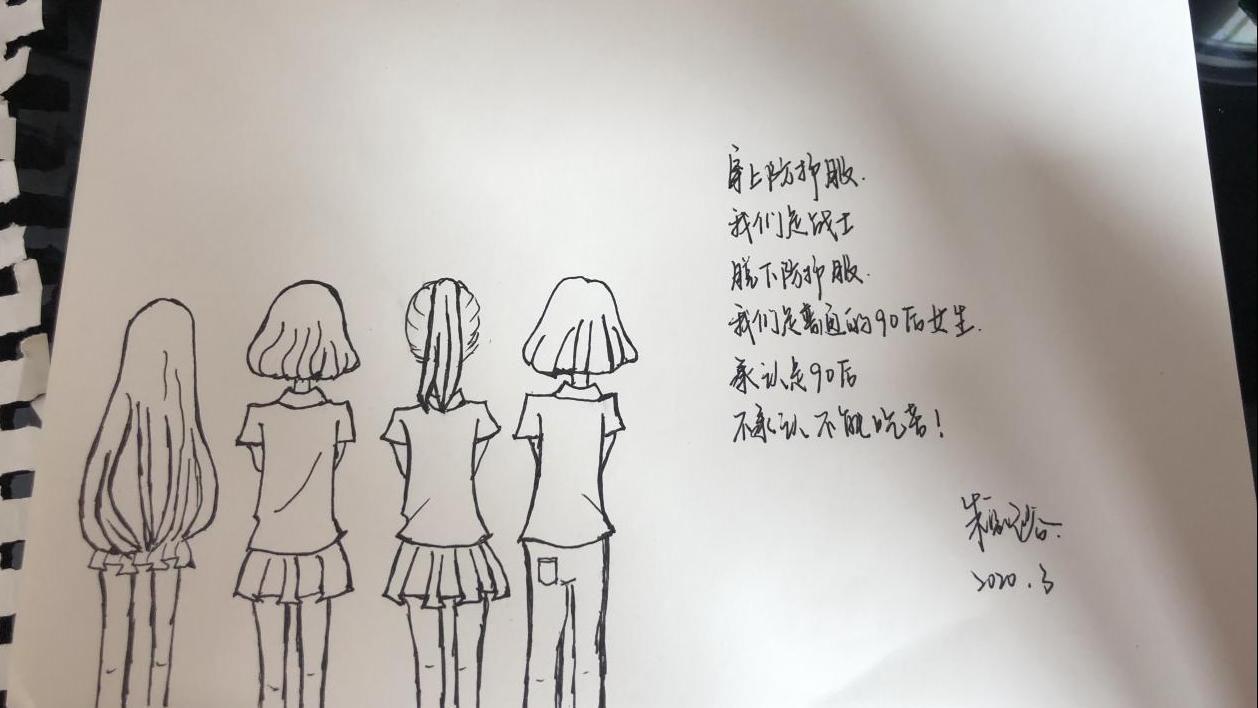 穿上防护服.
我们是战士
脱下防护服.
我们是普通的90后女生.
承认是90后
不承认不能吃苦!
2020.3